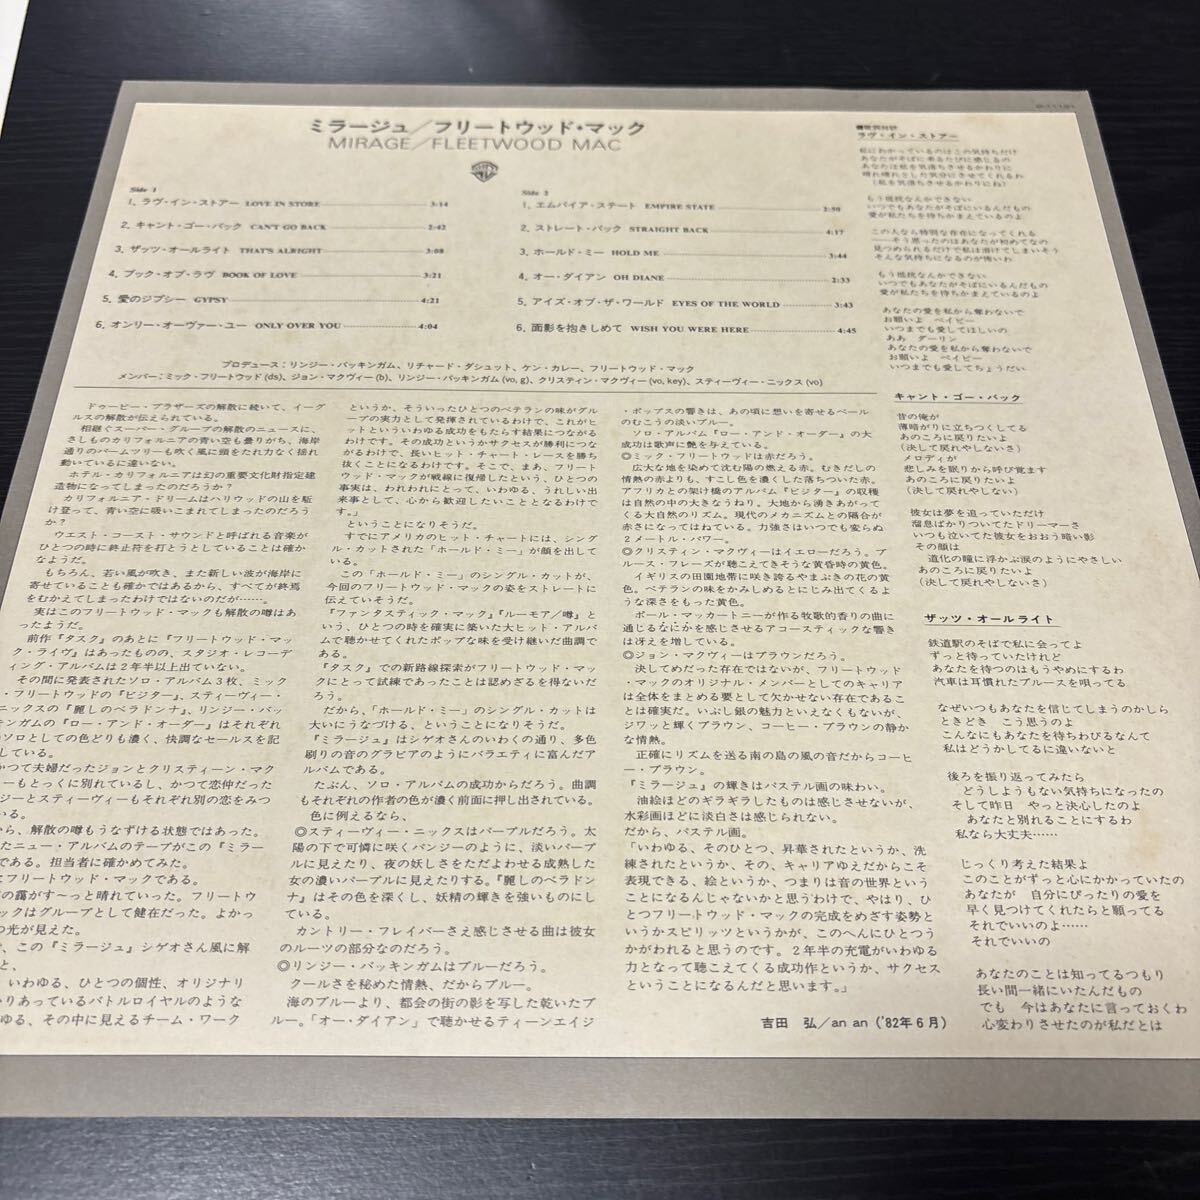 ミラージュ/フリートウッド・マック
MIRAGE/FLEETWOOD MAC
Side 1
1. ラヴ・イン・ストアー LOVE IN STORE 3:14
2. キャント・ゴー・バック CAN'T GO BACK 2:42
3. ザッツ・オールライト THAT'S ALRIGHT 3:08
4. ブック・オブ・ラヴ BOOK OF LOVE 3:21
5. 愛のジプシー GYPSY 4:21
6. オンリー・オーヴァー・ユー ONLY OVER YOU 4:04
Side 2
1. エムパイア・ステート EMPIRE STATE 2:50
2. ストレート・バック STRAIGHT BACK 4:17
3. ホールド・ミー HOLD ME 3:44
4. オー・ダイアン OH DIANE 2:33
5. アイズ・オブ・ザ・ワールド EYES OF THE WORLD 3:43
6. 面影を抱きしめて WISH YOU WERE HERE 4:45
プロデュース：リンジー・バッキンガム、リチャード・ダシュット、ケン・カレー、フリートウッド・マック
メンバー：ミック・フリートウッド(ds)、ジョン・マクヴィー(b)、リンジー・バッキンガム(vo, g)、クリスティン・マクヴィー(vo, key)、スティーヴィー・ニックス(vo)
ドゥービー・ブラザーズの解散に続いて、イーグ
ルスの解散が伝えられている。
相継ぐスーパー・グループの解散のニュースに、
さしものカリフォルニアの青い空も曇りがち、海岸
通りのパームツリーも吹く風に頭をたれ力なく揺れ
動いているに違いない。
ホテル・カリフォルニアは幻の重要文化財指定建
造物になってしまったのだろうか？
カリフォルニア・ドリームはハリウッドの山を駆
け登って、青い空に吸いこまれてしまったのだろう
か？
ウエスト・コースト・サウンドと呼ばれる音楽が
ひとつの時に終止符を打とうとしていることは確か
なようだ。
もちろん、若い風が吹き、また新しい波が海岸に
寄せていることも確かではあるから、すべてが終焉
をむかえてしまったわけではないのだが……。
実はこのフリートウッド・マックも解散の噂はあ
ったようだ。
前作『タスク』のあとに『フリートウッド・マッ
ク・ライヴ』はあったものの、スタジオ・レコーデ
ィング・アルバムは2年半以上出ていない。
その間に発表されたソロ・アルバム3枚、ミック
・フリートウッドの『ビジター』、スティーヴィー・
ニックスの『麗しのベラドンナ』、リンジー・バッ
キンガムの『ロー・アンド・オーダー』はそれぞれ
ソロとしての色どりも濃く、快調なセールスを記
している。
かつて夫婦だったジョンとクリスティーン・マク
ーもとっくに別れているし、かつて恋仲だった
ジーとスティーヴィーもそれぞれ別の恋をみつ
いる。
ら、解散の噂もうなずける状態ではあった。
たニュー・アルバムのテープがこの『ミラー
である。担当者に確かめてみた。
フリートウッド・マックである。
の靄がす〜っと晴れていった。フリートウ
ックはグループとして健在だった。よかっ
光が見えた。
、この『ミラージュ』シゲオさん風に解
と、
いわゆる、ひとつの個性、オリジナリ
りあっているバトルロイヤルのような
ゆる、その中に見えるチーム・ワーク
というか、そういったひとつのベテランの味がグル
ープの実力として発揮されているわけで、これがヒ
ットといういわゆる成功をもたらす結果につながる
わけです。その成功というかサクセスが勝利につな
がるわけで、長いヒット・チャート・レースを勝ち
抜くことになるわけです。そこで、まあ、フリート
ウッド・マックが戦線に復帰したという、ひとつの
事実は、われわれにとって、いわゆる、うれしい出
来事として、心から歓迎したいこととなるわけで
す。」
ということになりそうだ。
すでにアメリカのヒット・チャートには、シング
ル・カットされた「ホールド・ミー」が顔を出して
いる。
この「ホールド・ミー」のシングル・カットが、
今回のフリートウッド・マックの姿をストレートに
伝えていそうだ。
『ファンタスティック・マック』『ルーモア/噂』と
いう、ひとつの時を確実に築いた大ヒット・アルバ
ムで聴かせてくれたポップな味を受け継いだ曲調で
ある。
『タスク』での新路線探索がフリートウッド・マッ
クにとって試練であったことは認めざるを得ないだ
ろう。
だから、「ホールド・ミー」のシングル・カットは
大いにうなづける、ということになりそうだ。
『ミラージュ』はシゲオさんのいわくの通り、多色
刷りの音のグラビアのようにバラエティに富んだア
ルバムである。
たぶん、ソロ・アルバムの成功からだろう。曲調
もそれぞれの作者の色が濃く前面に押し出されている。
色に例えるなら、
◎スティーヴィー・ニックスはパープルだろう。太
陽の下で可憐に咲くパンジーのように、淡いパープ
ルに見えたり、夜の妖しさをただよわせる成熟した
女の濃いパープルに見えたりする。『麗しのベラドン
ナ』はその色を深くし、妖精の輝きを強いものにし
ている。
カントリー・フレイバーさえ感じさせる曲は彼女
のルーツの部分なのだろう。
◎リンジー・バッキンガムはブルーだろう。
クールさを秘めた情熱、だからブルー。
海のブルーより、都会の街の影を写した乾いたブ
ルー。「オー・ダイアン」で聴かせるティーンエイジ
・ポップスの響きは、あの頃に想いを寄せるベール
のむこうの淡いブルー。
ソロ・アルバム『ロー・アンド・オーダー』の大
成功は歌声に艶を与えている。
◎ミック・フリートウッドは赤だろう。
広大な地を染めて沈む陽の燃える赤。むきだしの
情熱の赤よりも、すこし色を濃くした落ちついた赤。
アフリカとの架け橋のアルバム『ビジター』の収穫
は自然の中の大きなうねり。大地から湧きあがって
くる大自然のリズム。現代のメカニズムとの隔合が
赤さになってはねている。力強さはいつでも変らぬ
2メートル・パワー。
◎クリスティン・マクヴィーはイエローだろう。ブ
ルース・フレーズが聴こえてきそうな黄昏時の黄色。
イギリスの田園地帯に咲き誇るやまぶきの花の黄
色。ベテランの味をかみしめるとにじみ出てくるよ
うな深さをもった黄色。
ポール・マッカートニーが作る牧歌的香りの曲に
通じるなにかを感じさせるアコースティックな響き
は冴えを増している。
◎ジョン・マクヴィーはブラウンだろう。
決してめだった存在ではないが、フリートウッド
・マックのオリジナル・メンバーとしてのキャリア
は全体をまとめる要として欠かせない存在であるこ
とは確実だ。いぶし銀の魅力といえなくもないが、
ジワッと輝くブラウン、コーヒー・ブラウンの静か
な情熱。
正確にリズムを送る南の島の風の音だからコーヒ
ー・ブラウン。
『ミラージュ』の輝きはパステル画の味わい。
油絵ほどのギラギラしたものは感じさせないが、
水彩画ほどに淡白さは感じられない。
だから、パステル画。
「いわゆる、そのひとつ、昇華されたというか、洗
練されたというか、その、キャリアゆえだからこそ
表現できる、絵というか、つまりは音の世界という
ことになるんじゃないかと思うわけで、やはり、ひ
とつフリートウッド・マックの完成をめざす姿勢と
いうかスピリッツというかが、このへんにひとつう
かがわれると思うのです。2年半の充電がいわゆる
力となって聴こえてくる成功作というか、サクセス
ということになるんだと思います。」
吉田 弘/an an ('82年6月)
ラヴ・イン・ストアー
私にわかっているのはこの気持ちだけ
あなたがそばに来るたびに感じるの
あなたは私を気落ちさせるかわりに
晴れ晴れとした気分にさせてくれるわ
（私を気落ちさせるかわりにね）
もう抵抗なんかできない
いつでもあなたがそばにいるんだもの
愛が私たちを待ちかまえているのよ
この人なら特別な存在になってくれる
――そう思ったのはあなたが初めてなの
見つめられるだけで私は溶けてしまいそう
そんな気持ちになるのが怖いわ
もう抵抗なんかできない
いつでもあなたがそばにいるんだもの
愛が私たちを待ちかまえているのよ
あなたの愛を私から奪わないで
お願いよ ベイビー
いつまでも愛してほしいの
ああ ダーリン
あなたの愛を私から奪わないで
お願いよ ベイビー
いつまでも愛してちょうだい
キャント・ゴー・バック
昔の俺が
薄暗がりに立ちつくしてる
あのころに戻りたいよ
（決して戻れやしない）
メロディが
悲しみを眠りから呼び覚ます
あのころに戻りたいよ
（決して戻れやしない）
彼女は夢を追っていただけ
溜息ばかりついてたドリーマーさ
いつも泣いてた彼女をおおう暗い影
その顔は
道化の瞳に浮かぶ涙のようにやさしい
あのころに戻りたいよ
（決して戻れやしないさ）
ザッツ・オールライト
鉄道駅のそばで私に会ってよ
ずっと待っていたけれど
あなたを待つのはもうやめにするわ
汽車は耳慣れたブルースを唄ってる
なぜいつもあなたを信じてしまうのかしら
ときどき こう思うのよ
こんなにもあなたを待ちわびるなんて
私はどうかしてるに違いないと
後ろを振り返ってみたら
どうしようもない気持ちになったの
そして昨日 やっと決心したのよ
あなたと別れることにするわ
私なら大丈夫……
じっくり考えた結果よ
このことがずっと心にかかっていたの
あなたが 自分にぴったりの愛を
早く見つけてくれたらと願ってる
それでいいのよ……
それでいいの
あなたのことは知ってるつもり
長い間一緒にいたんだもの
でも 今はあなたに言っておくわ
心変わりさせたのが私だとは